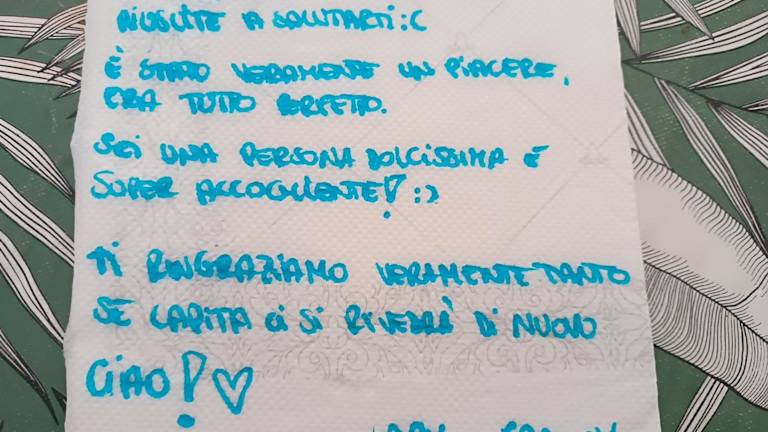 RIUSCITE A SALUTARTI :C
È STATO VERAMENTE UN PIACERE,
ERA TUTTO PERFETTO.
SEI UNA PERSONA DOLCISSIMA E
SUPER ACCOGLIENTE! :)
TI RINGRAZIAMO VERAMENTE TANTO
SE CAPITA CI SI RIVEDRÀ DI NUOVO
CIAO! ♡